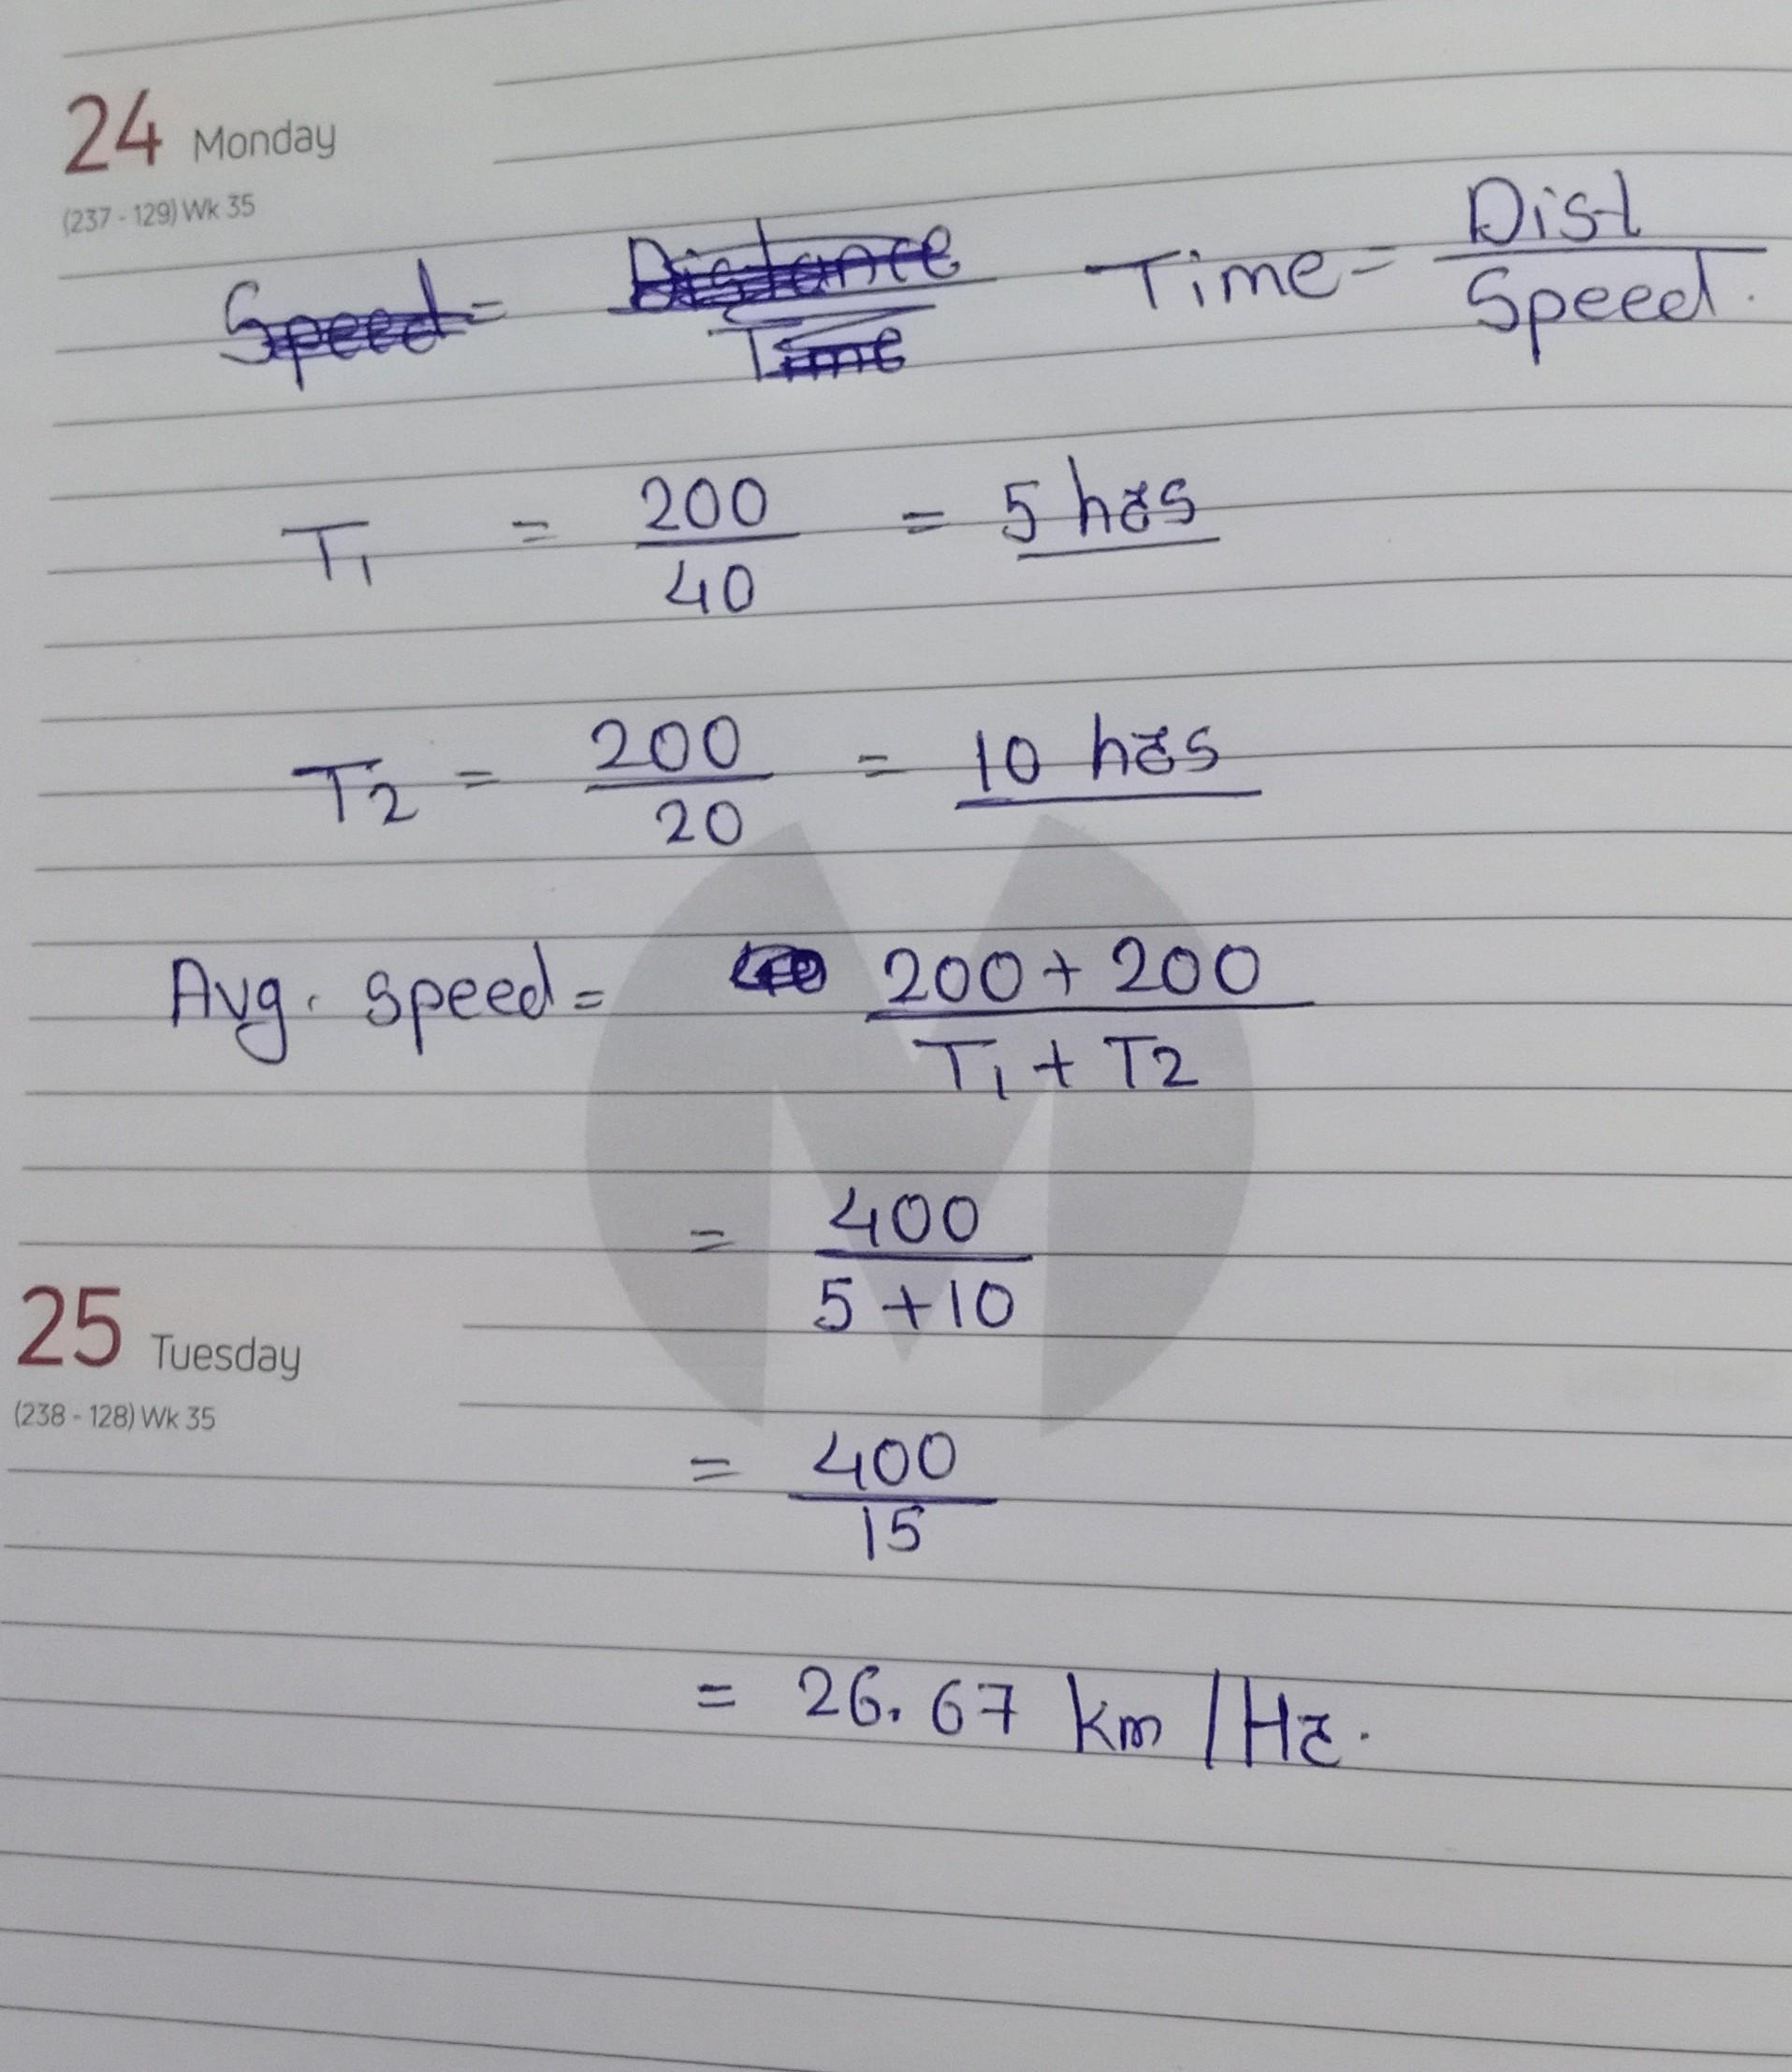 24 Monday
(237 - 129) Wk 35
Speed = Distance / Time Time = Dist / Speed.
T1 = 200 / 40 = 5 hrs
T2 = 200 / 20 = 10 hrs
Avg. speed = 200 + 200 / T1 + T2
= 400 / 5 + 10
25 Tuesday
(238 - 128) Wk 35
= 400 / 15
= 26.67 km / Hr.